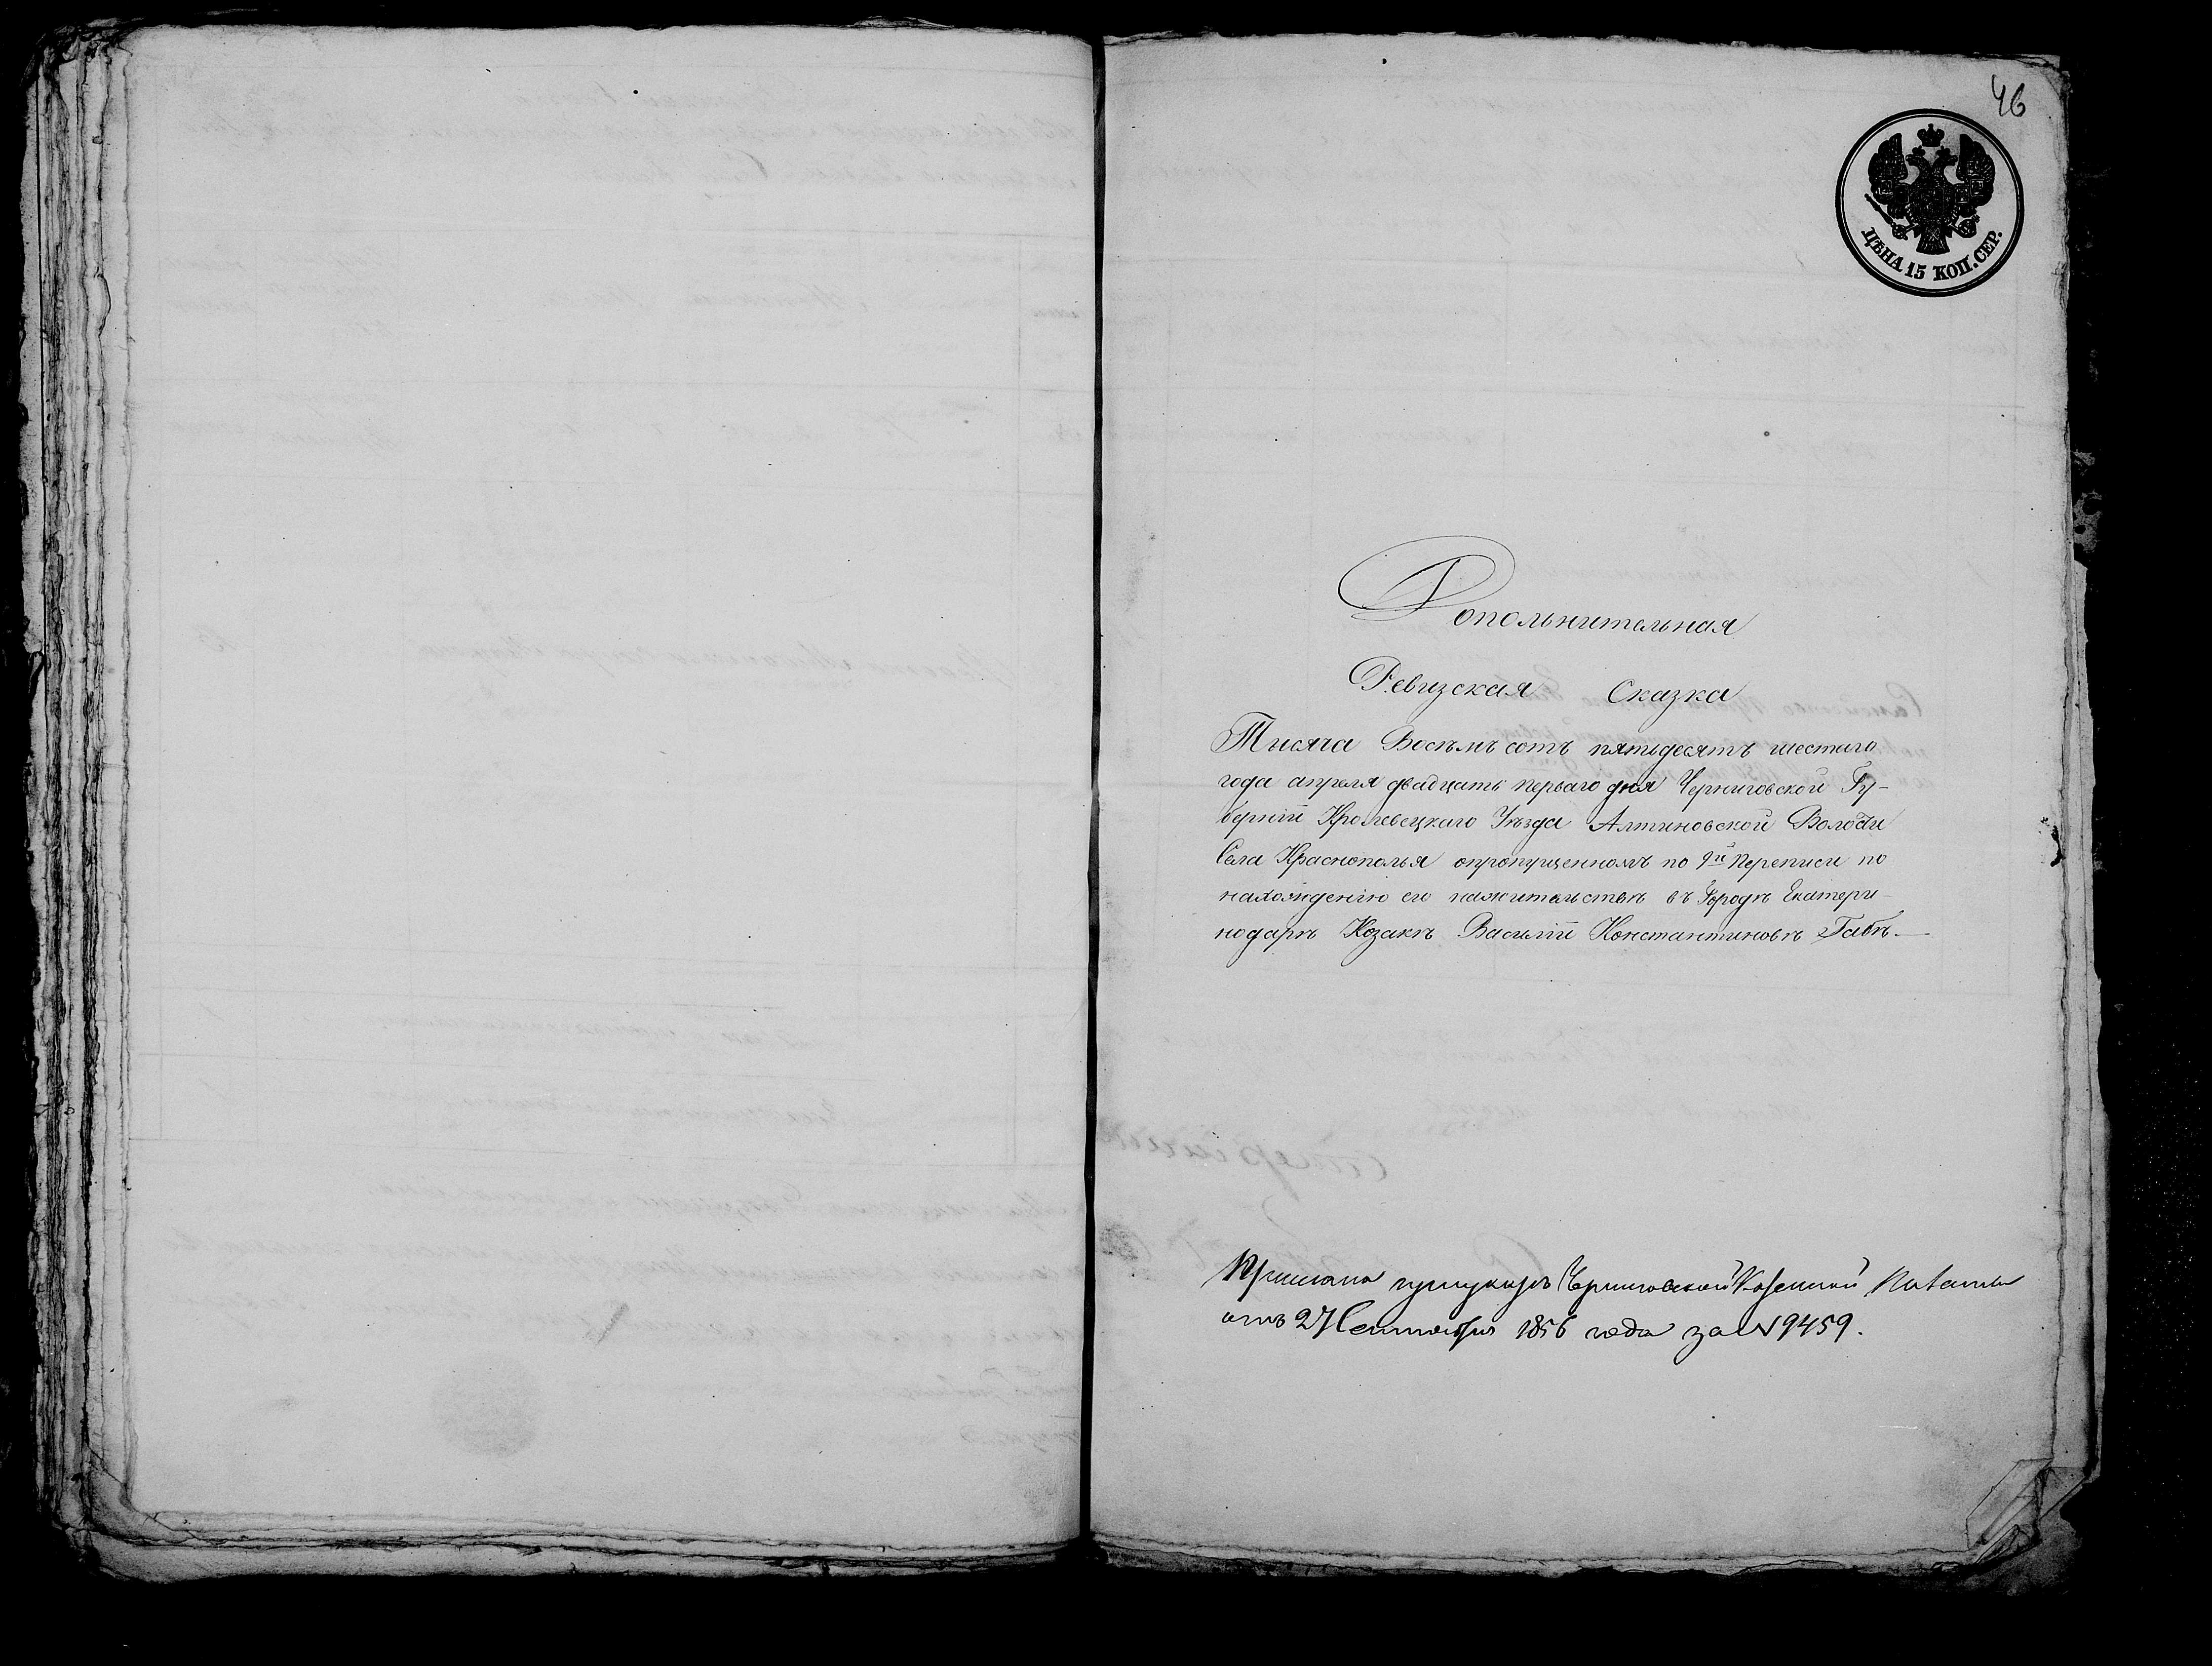 46
ЦѢНА 15 КОП. СЕР.
Дополнительная
Ревизская Сказка
Тысяча Восѣмъ сотъ пятьдесятъ шестаго
года апреля двадцать перваго дня Черниговской Гу-
берніи Кролевецкаго Уѣзда Алтиновской Волости
Села Краснополья опропущенномъ по 9й Переписи по
нахожденію его нажительствѣ въ Городѣ Екатери-
нодарѣ Козакѣ Василіи Константиновѣ Габѣ.
Черниговской Казенной Палаты
отъ 27 Сентября 1856 года за N 9459.